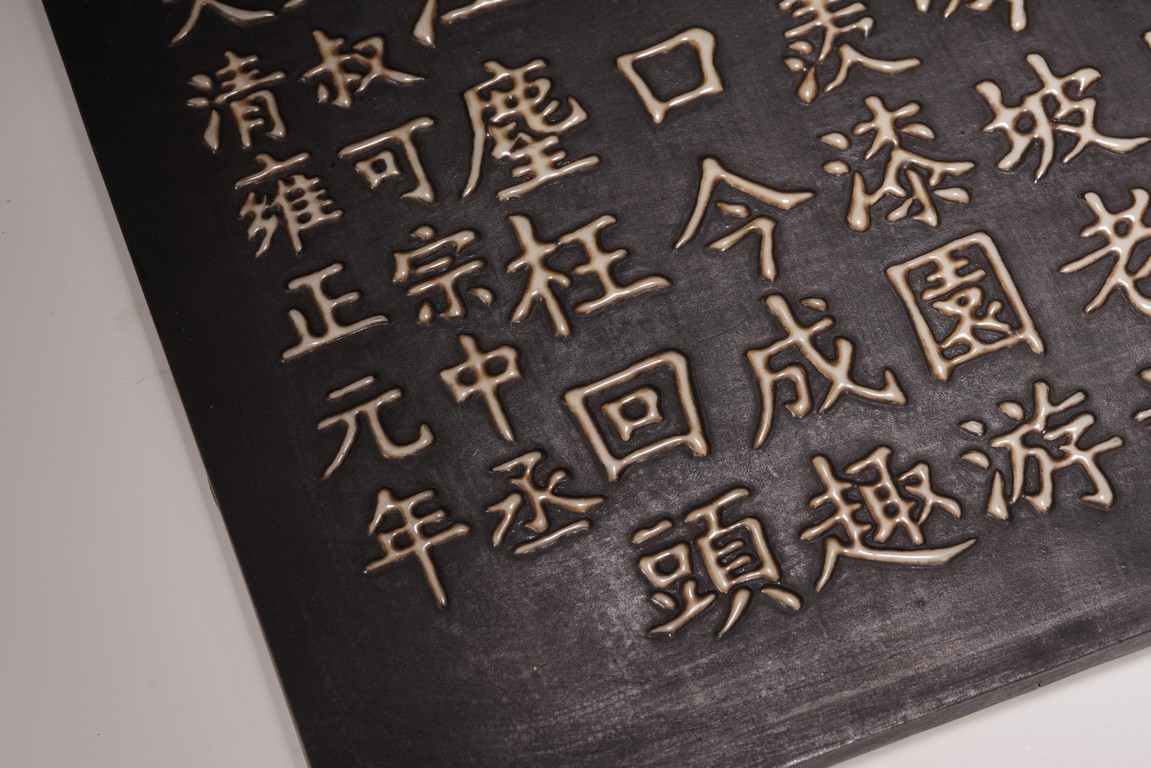 坡老
美漆園游
口今成趣
塵枉回頭
叔可宗中丞
清雍正元年